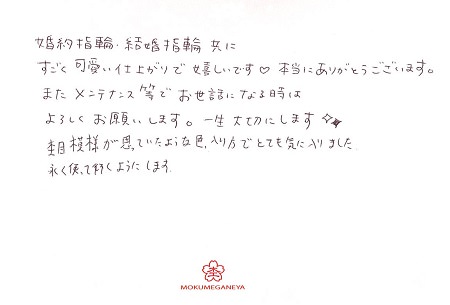 婚約指輪・結婚指輪 共に
すごく可愛い仕上がりで嬉しいです♡ 本当にありがとうございます。
また メンテナンス等で お世話になる時は
よろしく お願いします。一生 大切にします
木目模様が思っていたような色、入り方で とても気に入りました。
永く使って行くようにします。
MOKUMEGANEYA